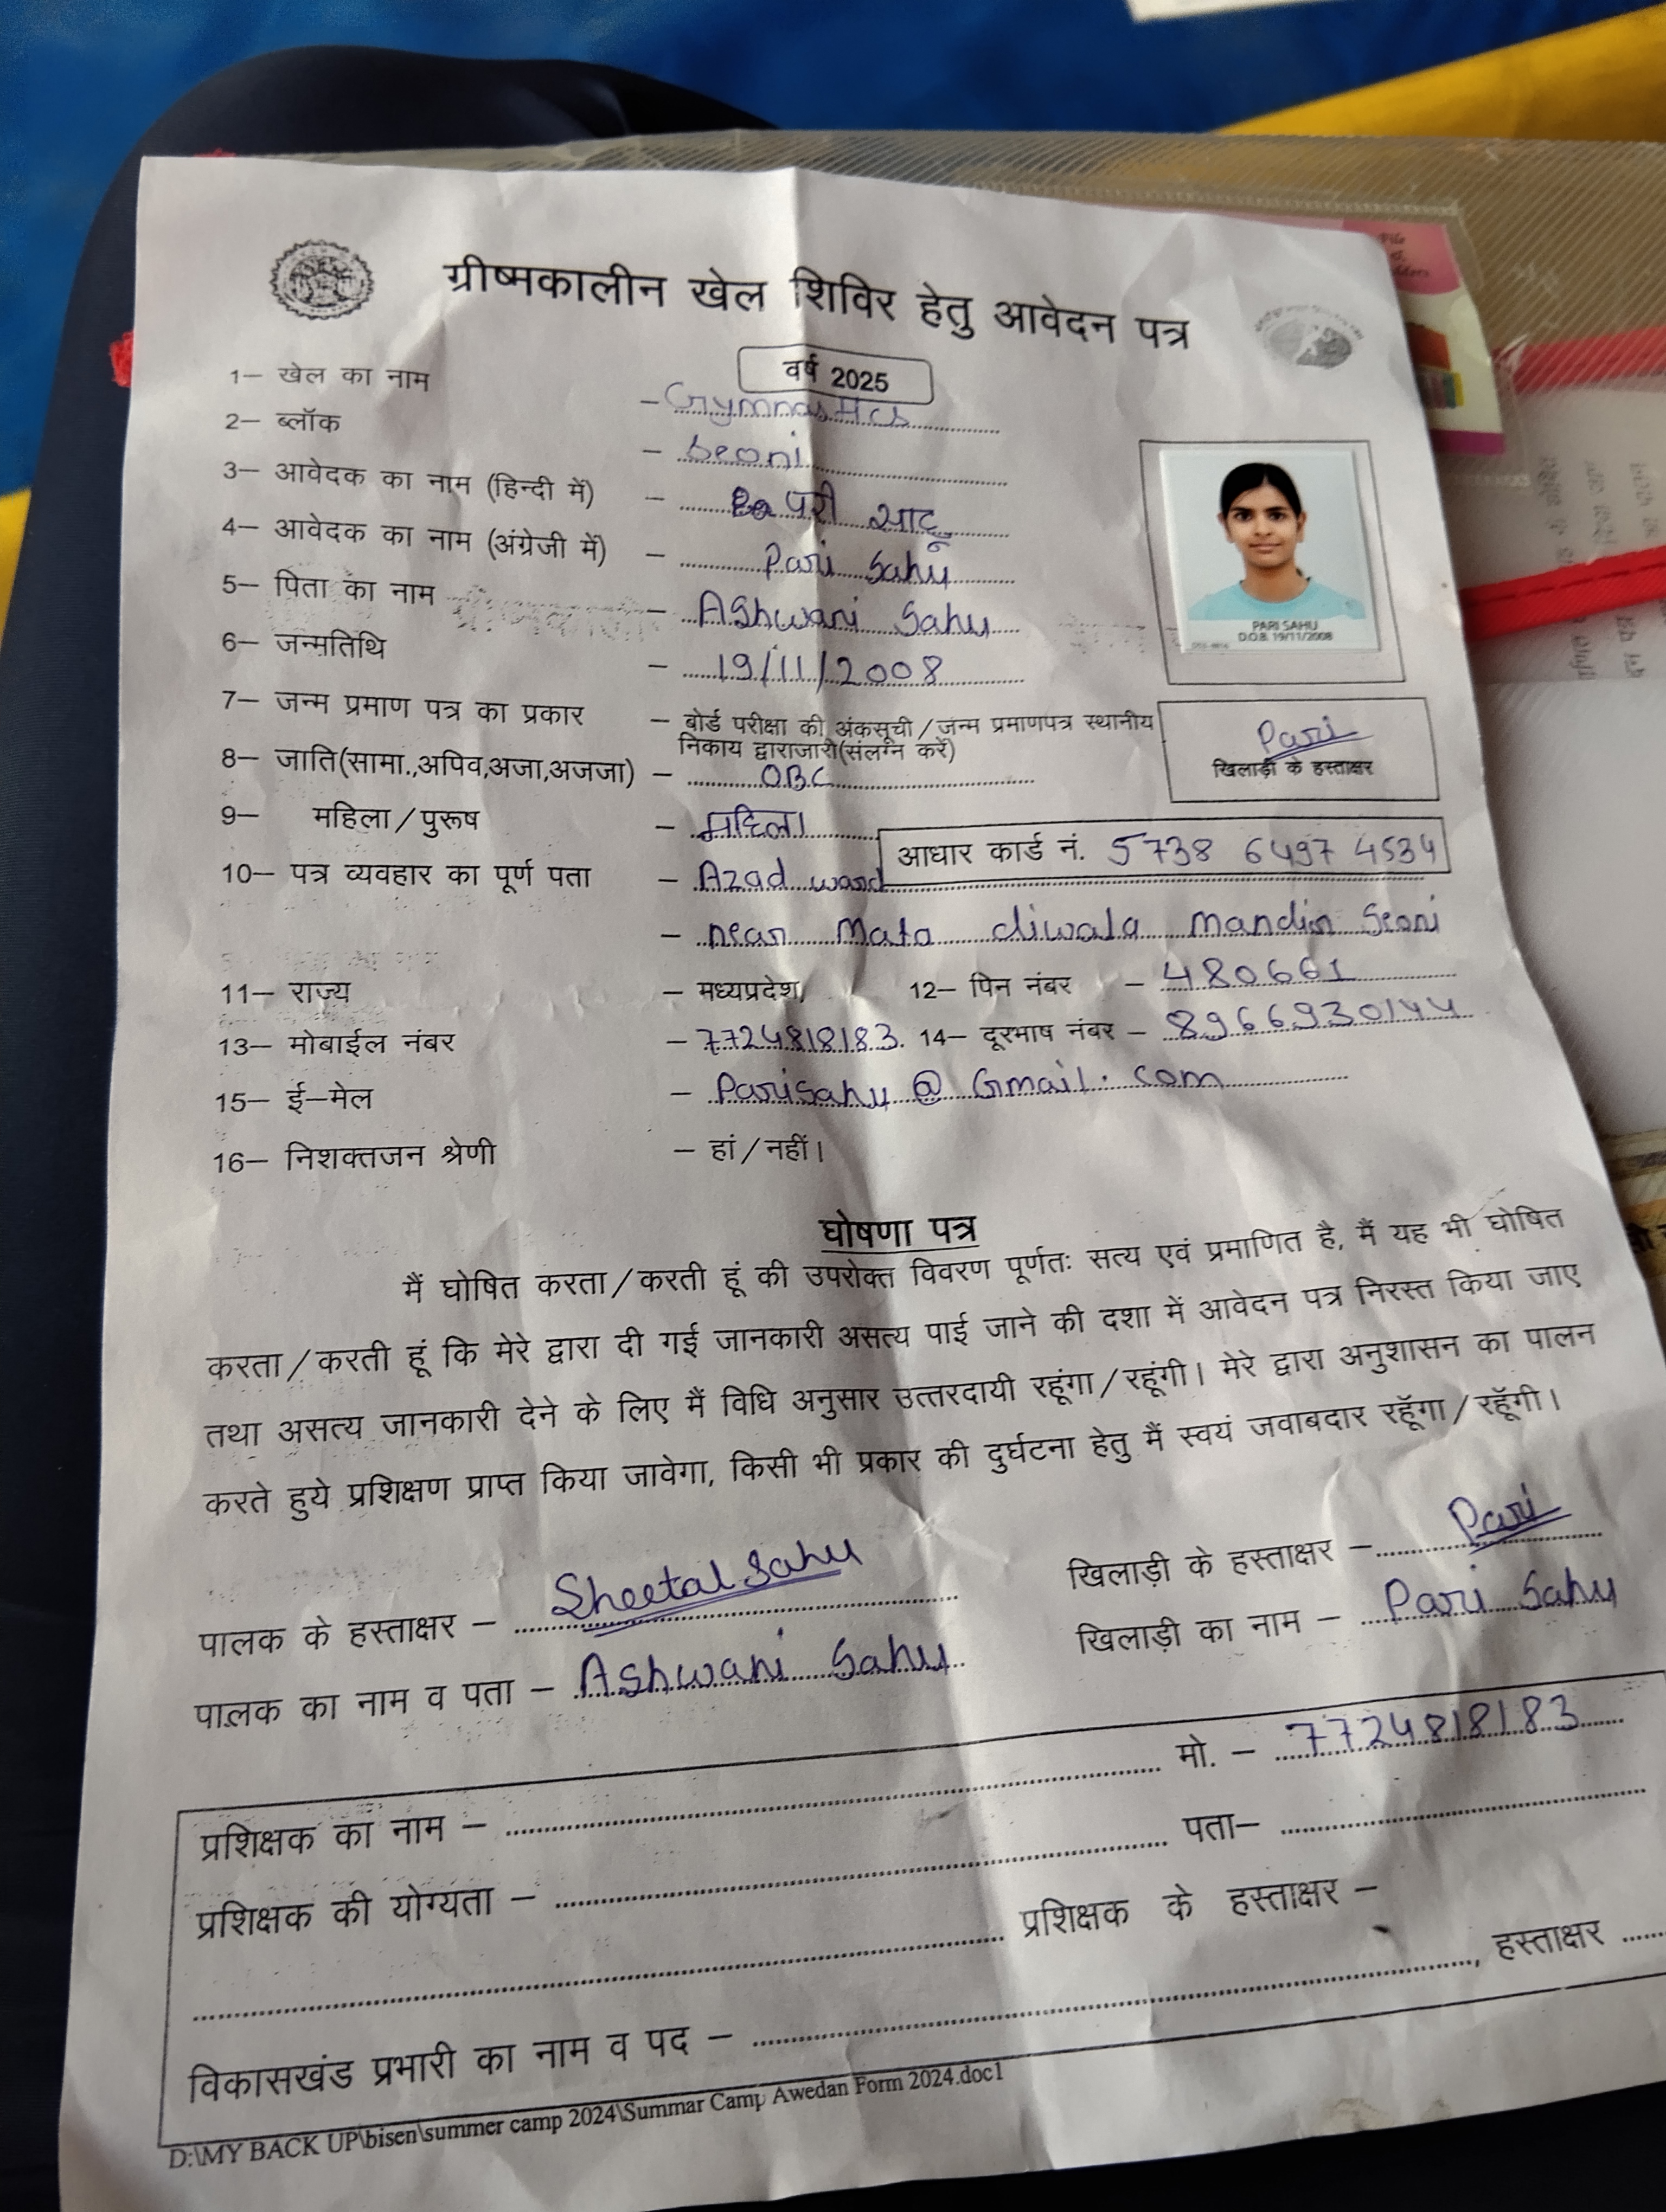 ग्रीष्मकालीन खेल शिविर हेतु आवेदन पत्र
वर्ष 2025
1– खेल का नाम – Gymnastics
2– ब्लॉक – Seoni
3– आवेदक का नाम (हिन्दी में) – परी साहू
4– आवेदक का नाम (अंग्रेजी में) – Pari Sahu
5– पिता का नाम – AShwani Sahu
6– जन्मतिथि – 19/11/2008
PARI SAHU
D.O.B. 19/11/2008
7– जन्म प्रमाण पत्र का प्रकार – बोर्ड परीक्षा की अंकसूची/जन्म प्रमाणपत्र स्थानीय
निकाय द्वाराजारी(संलग्न करें)
Pari
खिलाड़ी के हस्ताक्षर
8– जाति(सामा.,अपिव,अजा,अजजा) – OBC
9– महिला/पुरूष – महिला
आधार कार्ड नं. 5738 6497 4534
10– पत्र व्यवहार का पूर्ण पता – Azad ward
– near Mata diwala Mandir Seoni
11– राज्य – मध्यप्रदेश, 12– पिन नंबर – 480661
13– मोबाईल नंबर – 7724818183. 14– दूरभाष नंबर – 8966930144
15– ई–मेल – PariSahu @ Gmail. com
16– निशक्तजन श्रेणी – हां/नहीं।
घोषणा पत्र
मैं घोषित करता/करती हूं की उपरोक्त विवरण पूर्णतः सत्य एवं प्रमाणित है, मैं यह भी घोषित
करता/करती हूं कि मेरे द्वारा दी गई जानकारी असत्य पाई जाने की दशा में आवेदन पत्र निरस्त किया जाए
तथा असत्य जानकारी देने के लिए मैं विधि अनुसार उत्तरदायी रहूंगा/रहूंगी। मेरे द्वारा अनुशासन का पालन
करते हुये प्रशिक्षण प्राप्त किया जावेगा, किसी भी प्रकार की दुर्घटना हेतु मैं स्वयं जवाबदार रहूँगा/रहूँगी।
पालक के हस्ताक्षर – Sheetal Sahu खिलाड़ी के हस्ताक्षर – Pari
पालक का नाम व पता – AShwani Sahu खिलाड़ी का नाम – Pari Sahu
प्रशिक्षक का नाम – मो. – 7724818183
प्रशिक्षक की योग्यता – पता–
प्रशिक्षक के हस्ताक्षर –
विकासखंड प्रभारी का नाम व पद – , हस्ताक्षर
D:\MY BACK UP\bisen\summer camp 2024\Summar Camp Awedan Form 2024.doc1